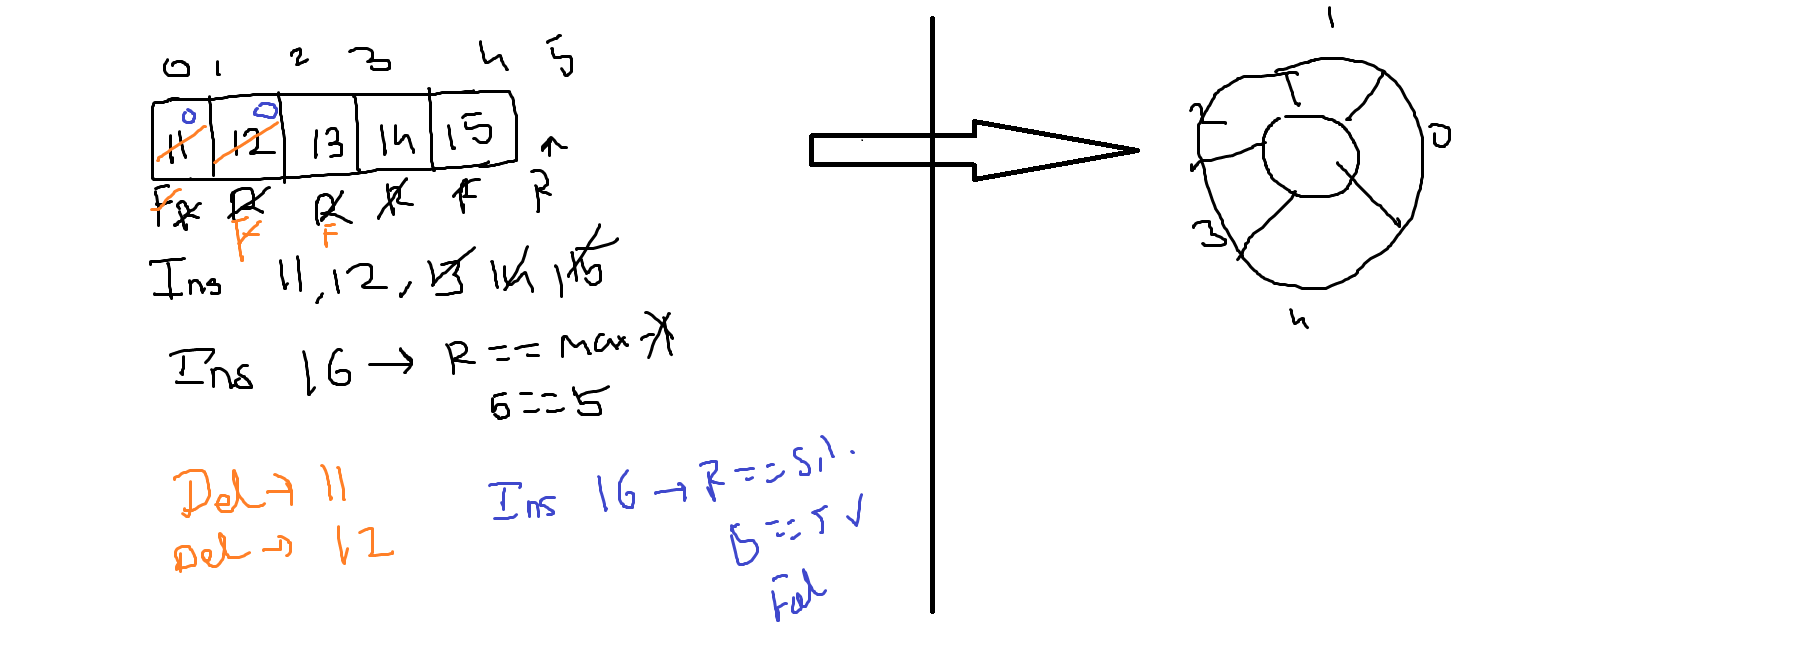 0 1 2 3 4 5
0 0
11 12 13 14 15
F R R R R F R
F F
Ins 11, 12, 13 14, 15
Ins 16 → R == Max →
5 == 5
Del → 11
Del → 12
Ins 16 → R == S.1.
5 == 5 ✓
1
2
0
3
4